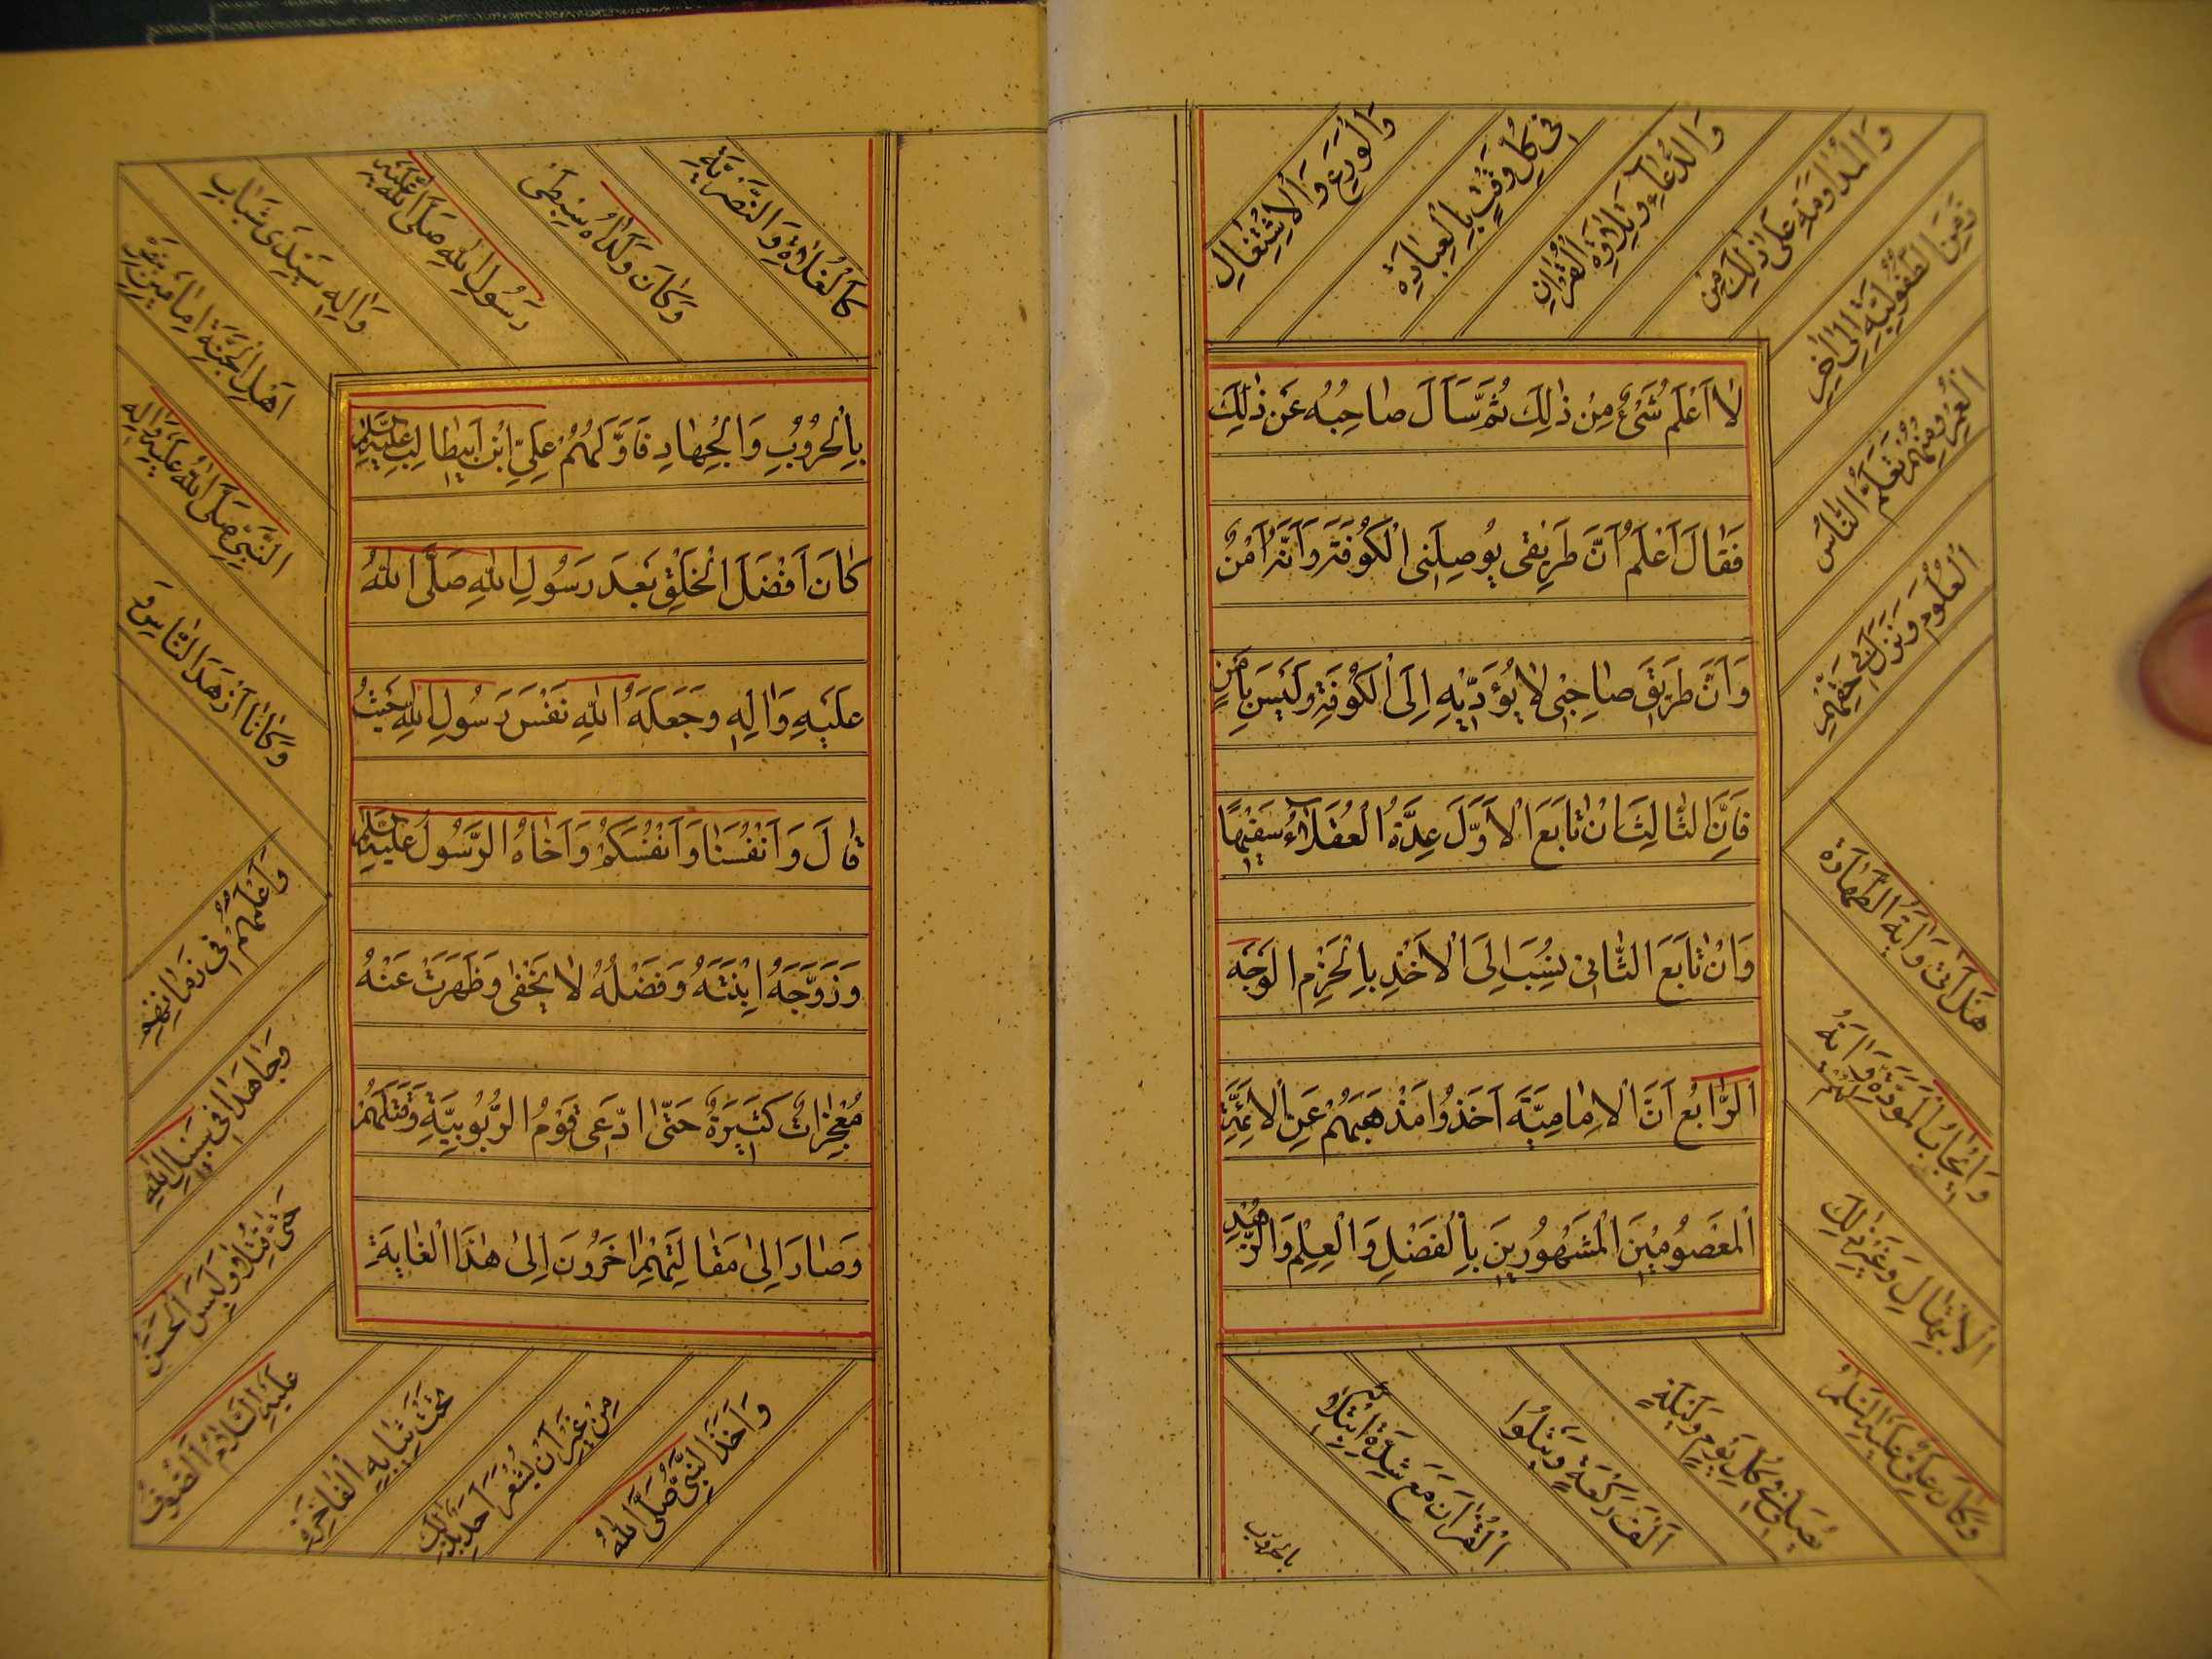 لَا أَعْلَمُ شَيْءٌ مِنْ ذٰلِكَ ثُمَّ سَأَلَ صَاحِبُهُ عَنْ ذٰلِكَ
فَقَالَ أَعْلَمُ أَنَّ طَرِيقى يُوصِلُنى الْكُوفَةَ وَأَنَّهُ آمِنٌ
وَأَنَّ طَرِيقَ صَاحِبِى لَا يُؤَدِّيهِ إِلَى الْكُوفَةِ وَلَيْسَ بِآمِنٍ
فَإِنَّ الثَّالِثَ إِنْ تَابَعَ الْأَوَّلَ عَدَّهُ الْعُقَلَاءُ سَفِيهًا
وَإِنْ تَابَعَ الثَّانى نُسِبَ إِلَى الْأَخْذِ بِالْحَزْمِ الوَجْه
الرَّابِعُ أَنَّ الْإِمَامِيَّةَ أَخَذُوا مَذْهَبَهُمْ عَنِ الْأَئِمَّةِ
الْمَعْصُومِينَ الْمَشْهُورِينَ بِالْفَضْلِ وَالْعِلْمِ وَالزُّهْدِ
وَالْوَرَعِ وَالْاِشْتِغَالِ
فِى كُلِّ وَقْتٍ بِالْعِبَادَةِ
وَالدُّعَاءِ وَتِلَاوَةِ الْقُرْآنِ
وَالْمُدَاوَمَةِ عَلَى ذٰلِكَ مِنْ
زَمَنِ الطُّفُولِيَّةِ إِلَى آخِرِ
الْعُمُرِ وَمِنْهُمْ تَعَلَّمَ النَّاسُ
الْعُلُومَ وَنَزَلَ فِى حَقِّهِمْ
هَلْ أَتَى وَآيَةُ الطَّهَارَةِ
وَإِيجَابُ الْمَوَدَّةِ لَهُمْ وَآيَةُ
الْاِبْتِهَالِ وَغَيْرُ ذٰلِكَ
وَكَانَ عَلِىٌّ عَلَيْهِ السَّلَمُ
يُصَلِّى فِى كُلِّ يَوْمٍ وَلَيْلَةٍ
أَلْفَ رَكْعَةٍ وَيَتْلُوا
الْقُرْآنَ مَعَ شِدَّةِ ابْتِلَائِهِ
بالحروب
بِالْحُرُوبِ وَالْجِهَادِ فَأَوَّلُهُمْ عَلِىُّ ابْنُ أَبِيطَالِبٍ عَلَيْهِ السَّلَمُ
كَانَ أَفْضَلَ الْخَلْقِ بَعْدَ رَسُولِ اللهِ صَلَّى اللهُ
عَلَيْهِ وَآلِهِ وَجَعَلَهُ اللهُ نَفْسَ رَسُولِ اللهِ حَيْثُ
قَالَ وَأَنْفُسَنَا وَأَنْفُسَكُمْ وَآخَاهُ الرَّسُولُ عَلَيْهِ السَّلَمُ
وَزَوَّجَهُ ابْنَتَهُ وَفَضْلُهُ لَا يَخْفى وَظَهَرَتْ عَنْهُ
مُعْجِزَاتٌ كَثِيرَةٌ حَتَّى ادَّعى قَوْمٌ الرُّبُوبِيَّةِ وَقَتَلَهُمْ
وَصَارَ إِلى مَقَالَتِهِمْ آخَرُونَ إِلى هٰذَا الْغَايَةِ
كَالْغُلَاةِ وَالنُّصَيْرِيَّةِ
وَكَانَ وَلَدَاهُ سِبْطَىْ
رَسُولِ اللهِ صَلَّى اللهُ عَلَيْهِ
وَآلِهِ سَيِّدَىْ شَبَابِ
أَهْلِ الْجَنَّةِ إِمَامَيْنِ بِنَصِّ
النَّبِىِّ صَلَّى اللهُ عَلَيْهِ وَآلِهِ
وَكَانَا أَزْهَدَ النَّاسِ وَ
وَأَعْلَمَهُمْ فِى زَمَانِهِمْ
وَجَاهَدَا فِى سَبِيلِ اللهِ
حَتَّى قُتِلَا وَلَبِسَ الْحَسَنُ
عَلَيْهِ السَّلَامُ الصُّوفَ
تَحْتَ ثِيَابِهِ الْفَاخِرَةِ
مِنْ غَيْرِ أَنْ يُشْعِرَ أَحَدٌ بِذٰلِكَ
وَأَخَذَ النَّبِىُّ صَلَّى اللهُ